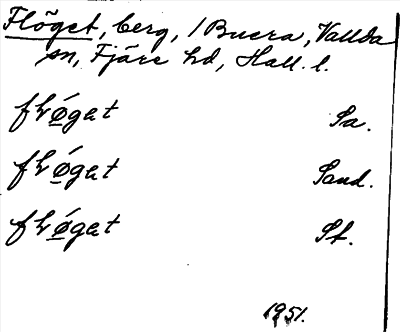 Flöget, berg, /Buera, Vallda
sn, Fjäre hd, Hall. l.
flǿget Sa.
flǿget Sand.
flǿget St.
1951.